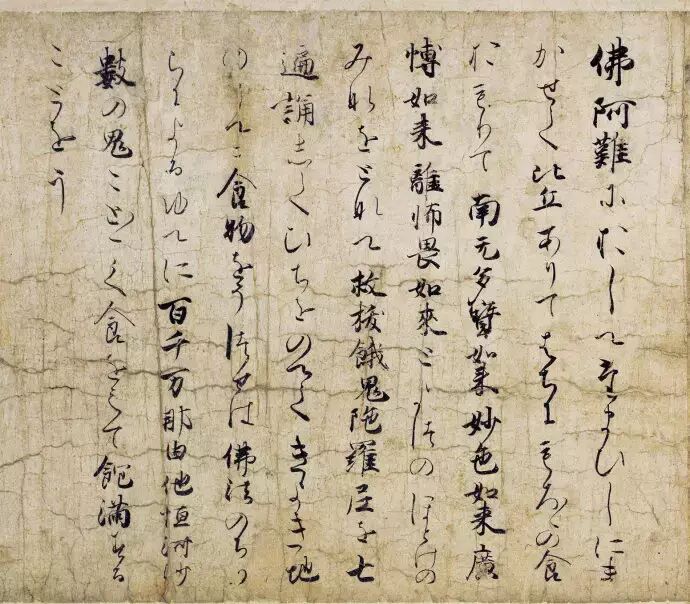 佛阿難におしへてのたまひしにま
かせて比丘ありてはちにもろ〱の食
おもりて南无多寶如来妙色如来廣
博如来離怖畏如来とのほとけの
みなをとなへて救拔餓鬼陀羅尼を七
遍誦してひちをのへてきよき地
のうへに食物をうつせは佛法のちか
らによるゆへに百千万那由他恒河沙
數の鬼こと〱く食をえて飽満する
ことをう